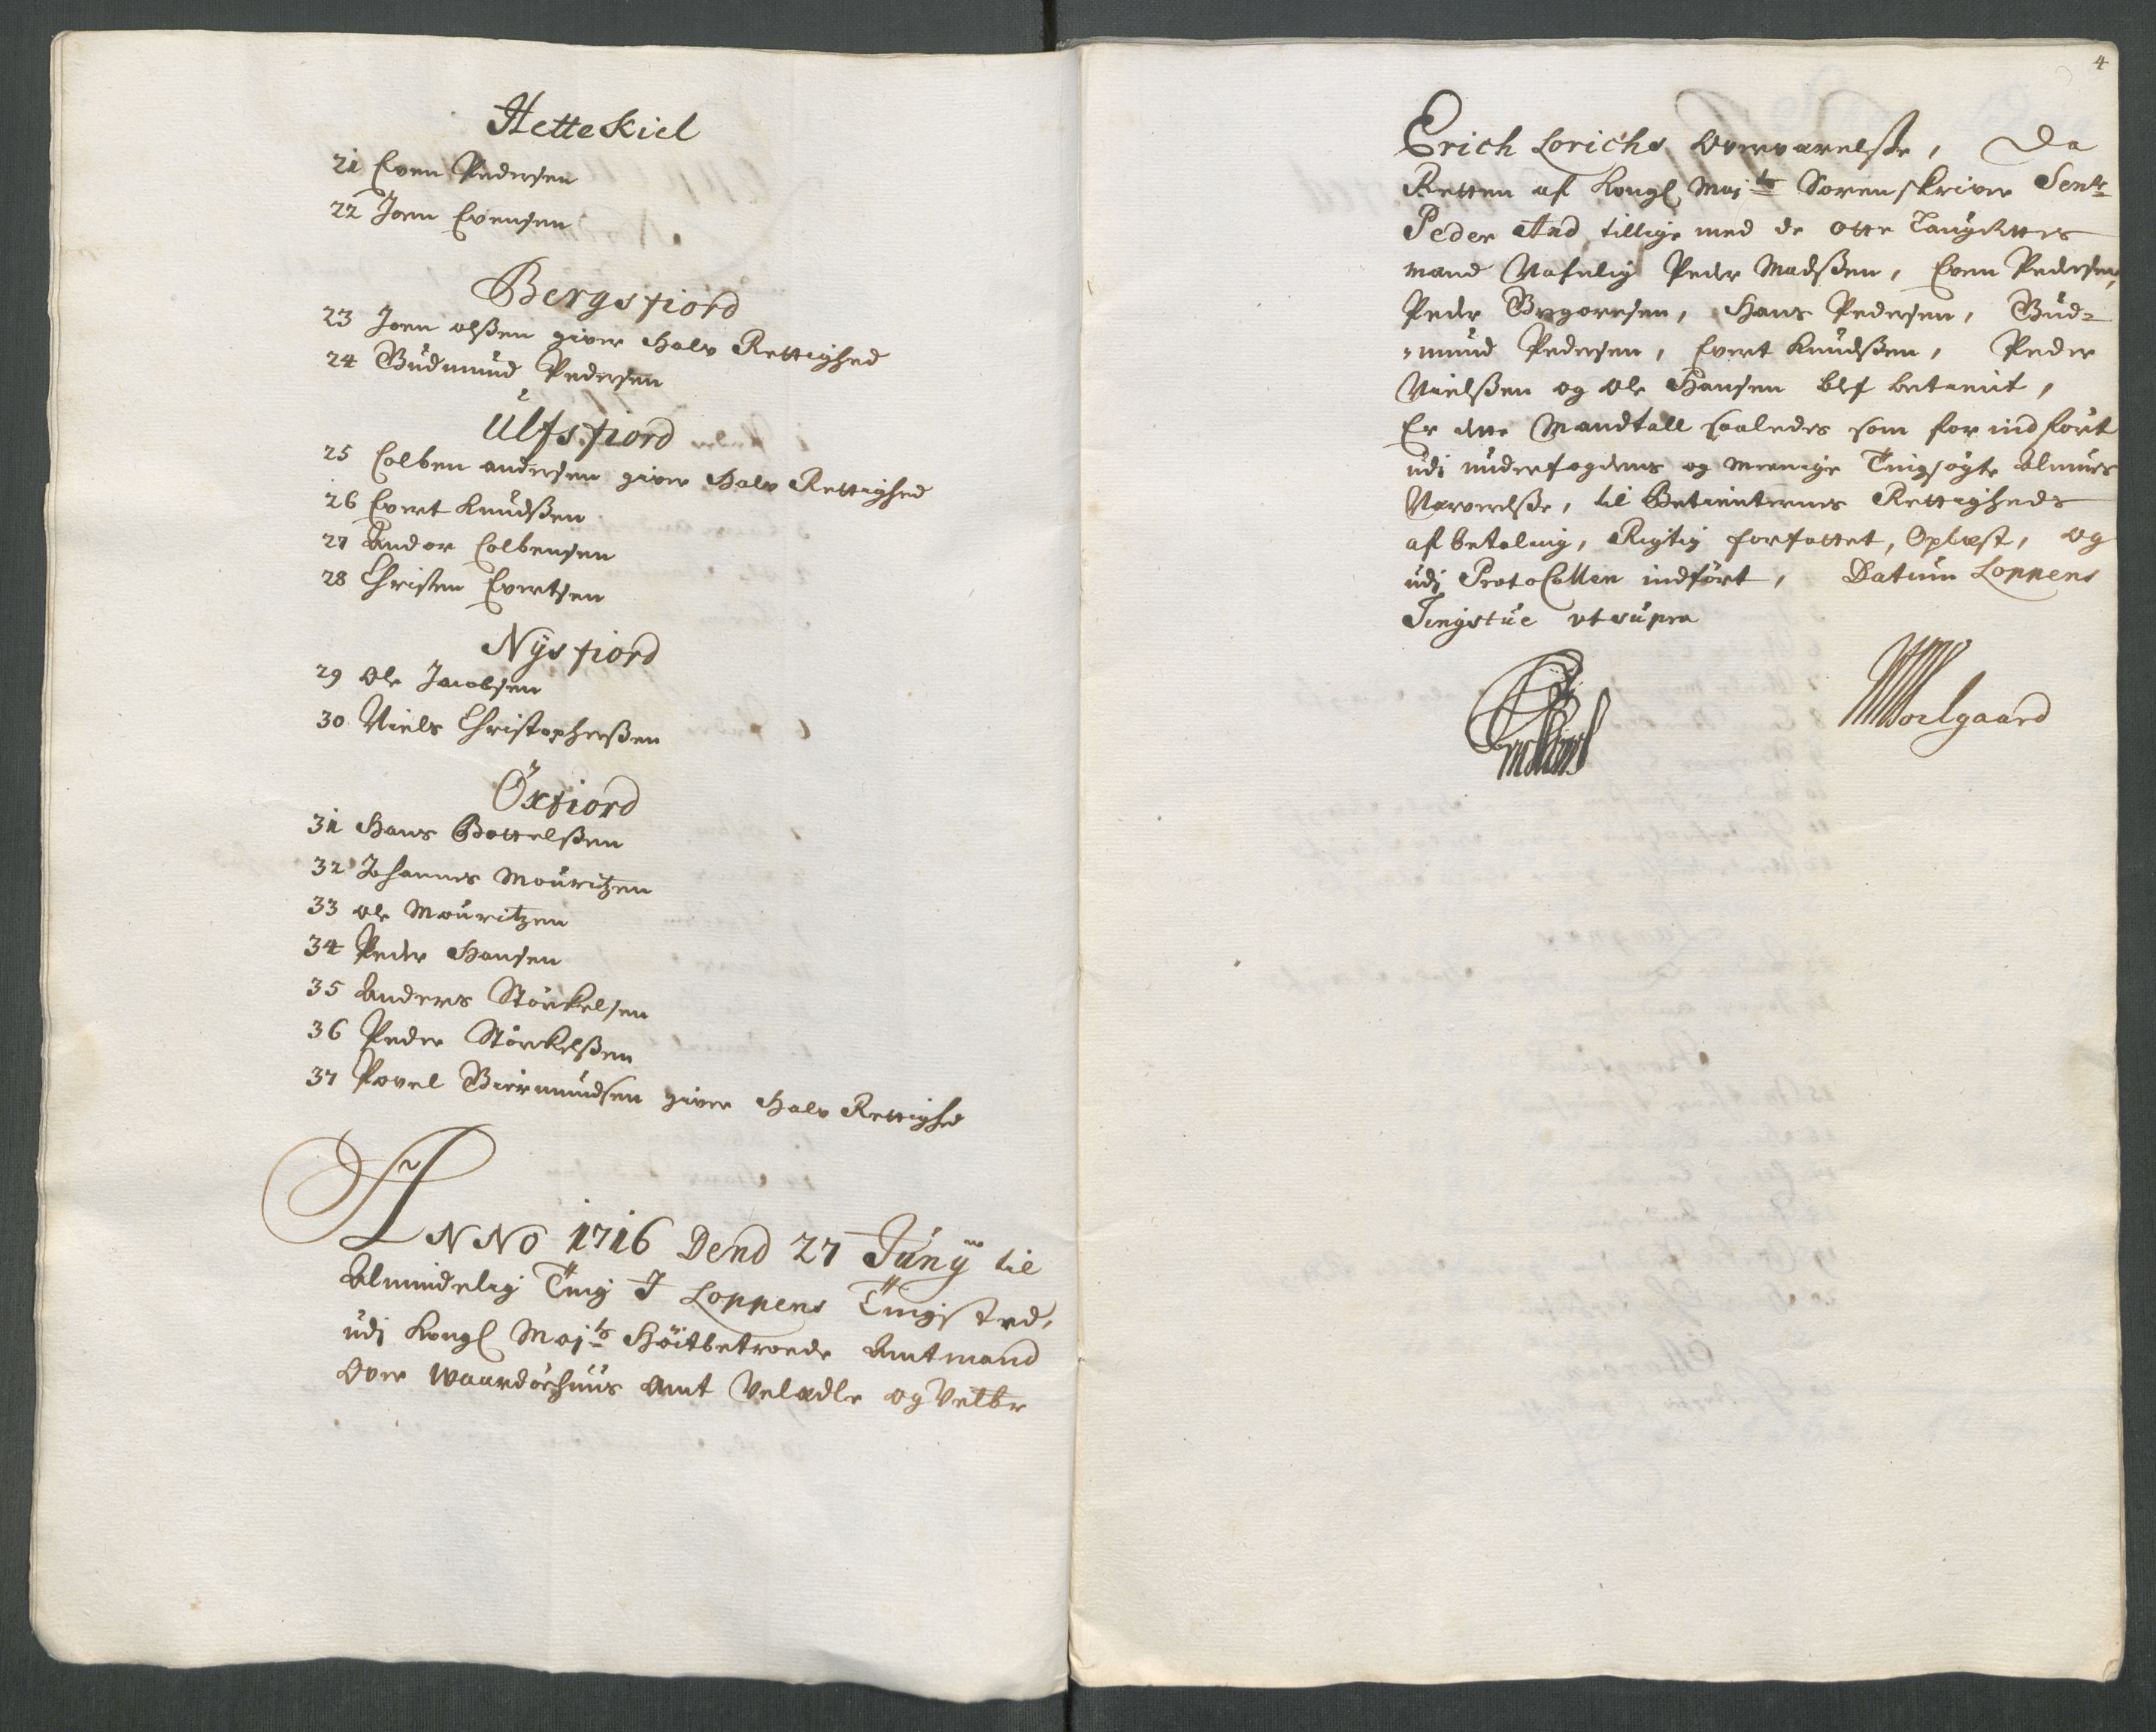 Hetteskiel
21 Even Pedersen
22 Joen Evensen
Bergsfiord
23 Joen olßen giver Halv Rettighed
24 Gudmund Pedersen
Ulfsfiord
25 Colben andersen giver Halv Rettighed
26 Evert Knudßen
27 Andor Colbensen
28 Christen Evertsen
Nysfiord
29 Ole Jacobsen
30 Niels Christopherßen
Öxfiord
31 Hans Bottelßen
32 Johannes Mouritzen
33 Ole Mouritzen
34 Peder Hansen
35 Anders Störkelsen
36 Peder Störkelßen
37 Povel Giermundsen giver Halv Rettighed
ANNO 1716 Dend 27 Junÿ til
Almindelig Ting I Loppens Tingsted,
udj Kongl Maj:ts Höitbetroede Amtmand
Over Waardöehuus Amt Velædle og Velbr
4
Erich Lorichs Overværelße, Da
Retten af Kongl Maj:ts Sorenskriver Senr
Peder And tillige med de otte Laugrettes
mænd Nafnlig Peder Madßen, Even Pedersen,
Peder Gregoresen, Hans Pedersen, Gud-
-mund Pedersen, Evert Knudßen, Peder
Nielßen og Ole Hansen blef betient,
Er dette Mandtall saaledes som for indfört
udj underfogdens og menige Tingsøgte Almues
Nærverelße, til Betienternes Rettigheds
afbetaling, Rigtig forfattet, Oplæst, og
udj Protocollen indfört, Datum Loppens
Tingstue ut supra
Wolgaard